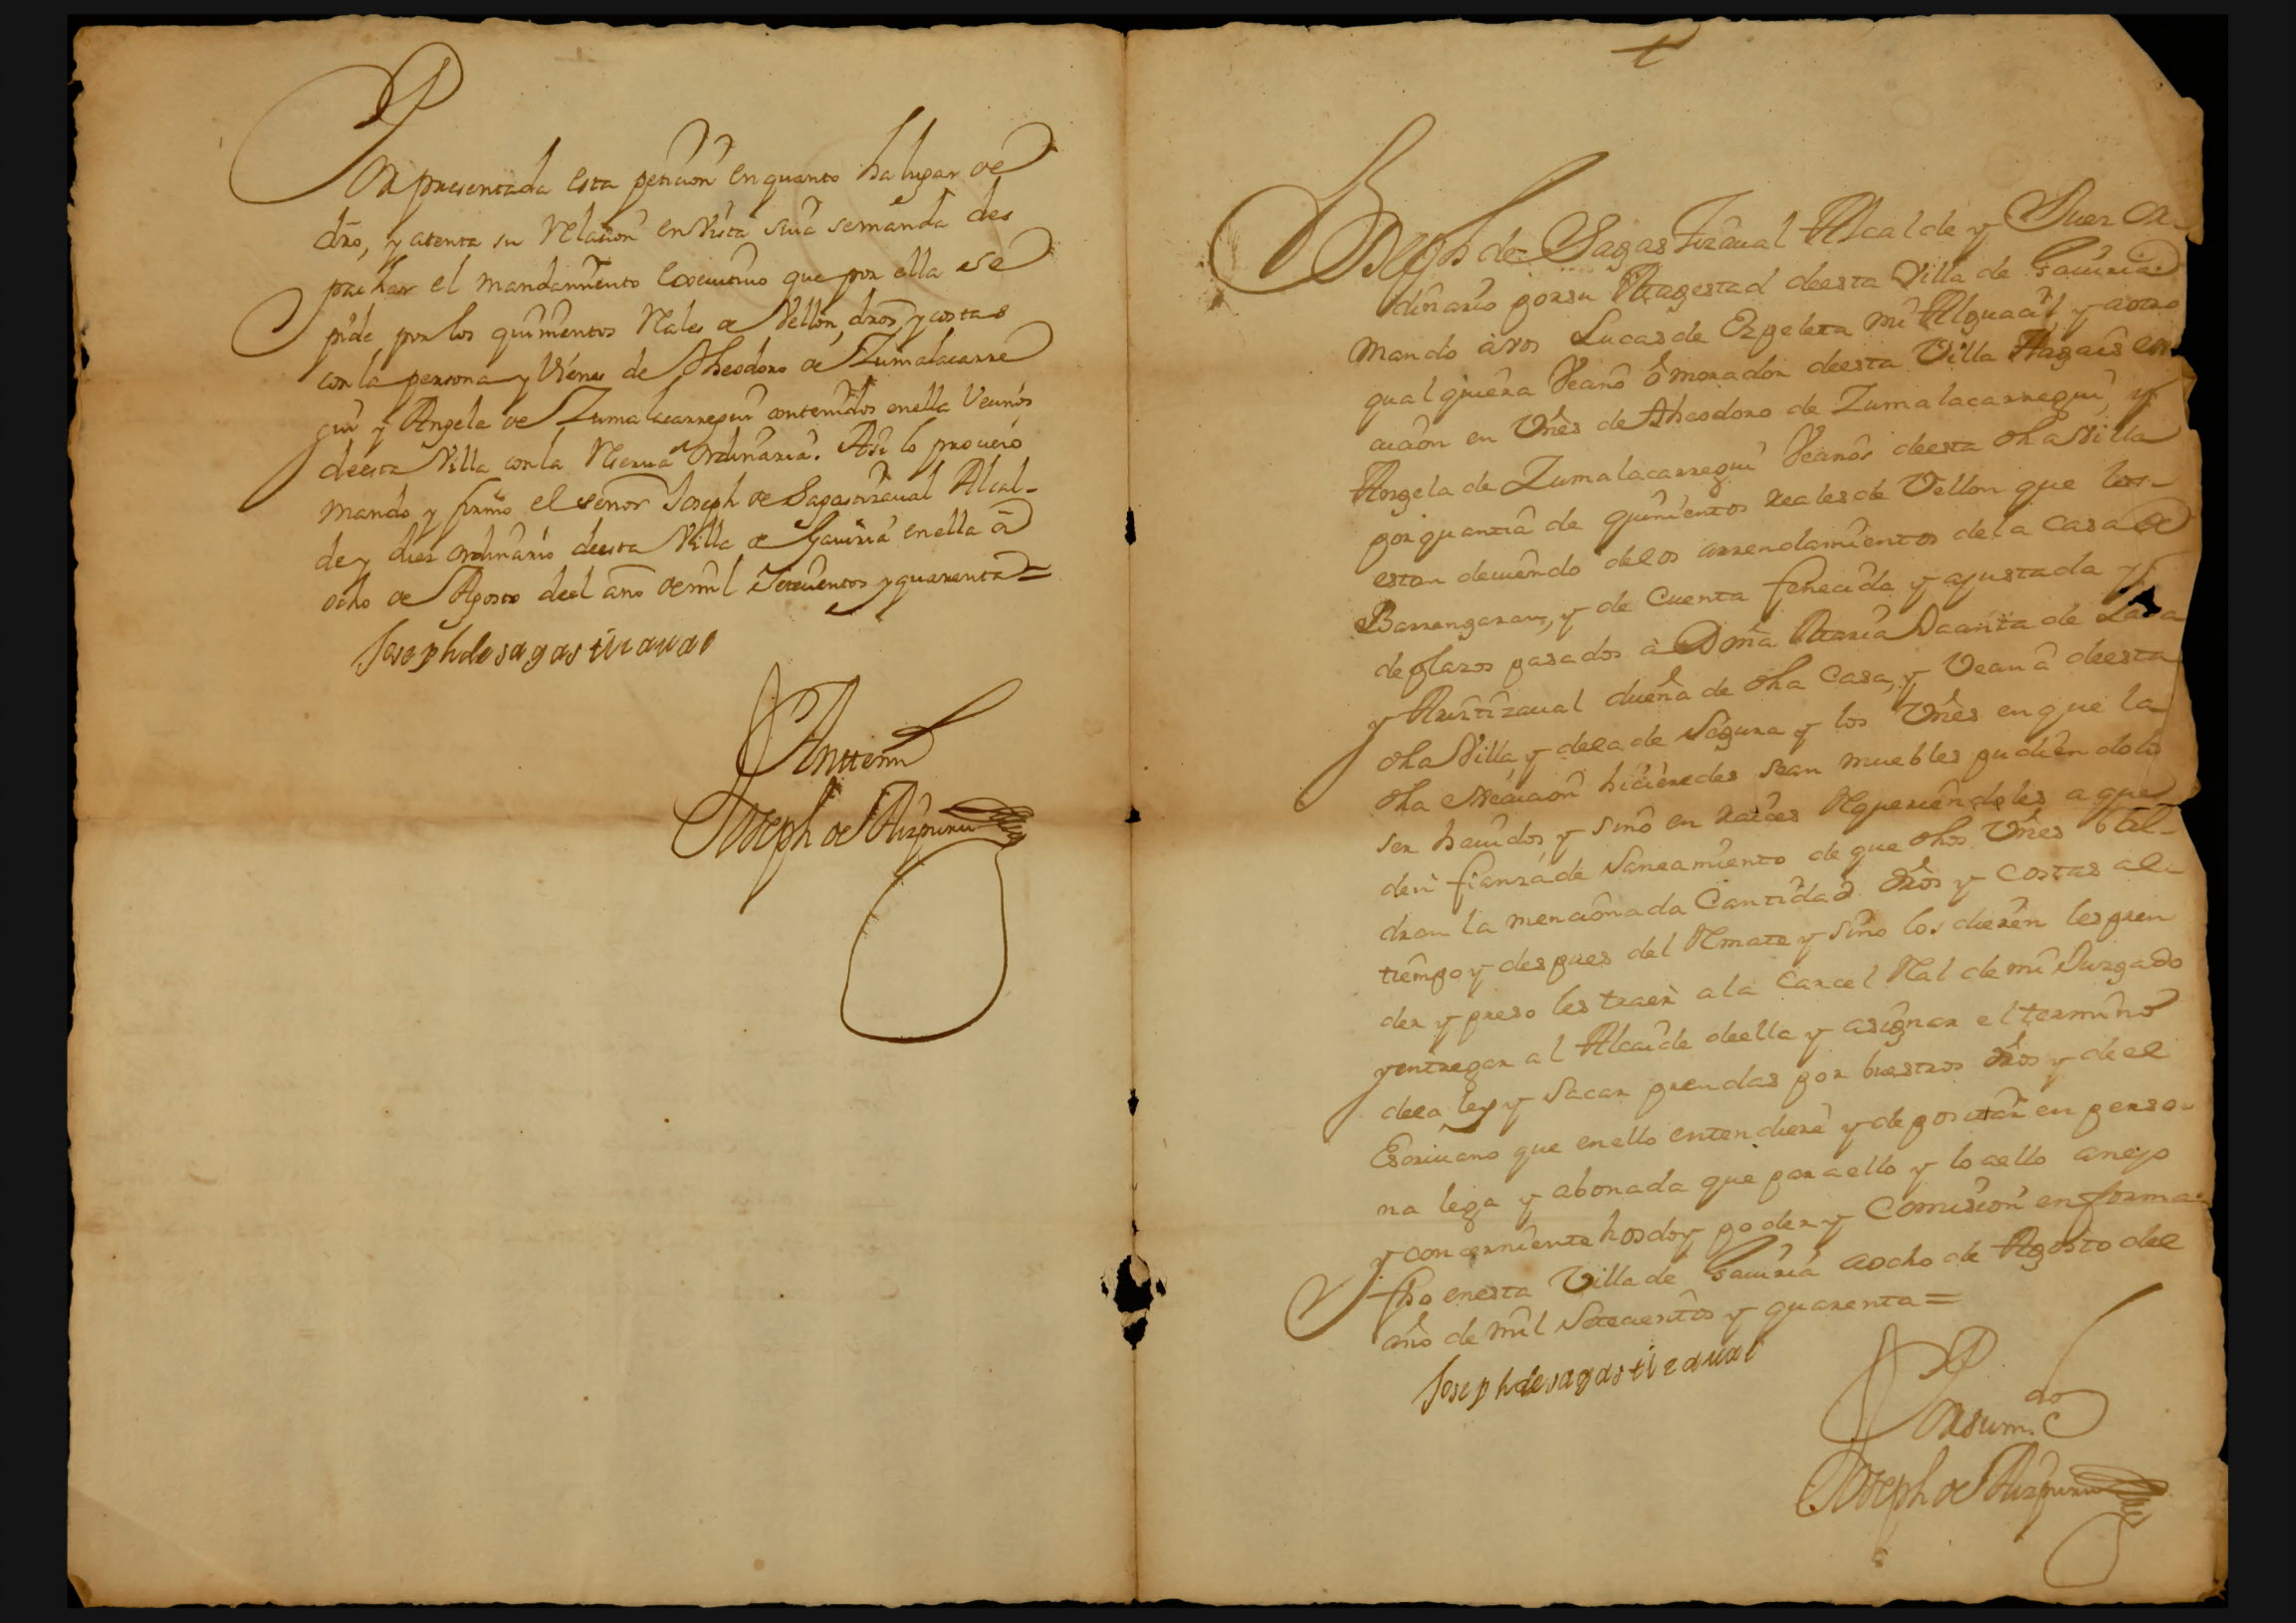 Por presentada esta peticion en quanto ha lugar de
dr̃o, y atenta su Relacion en Vista suia se manda des
pachar el mandamiento executivo que por ella se
pide por los quinientos Rales de Vellon, dr̃os y costas
con la persona y Vienes de Theodoro de Zumalacarre
gui y Angela de Zumalacarregui contenidos en ella Vecinos
de esta Villa con la Reserua Ordinaria. Asi lo proueió
mando y firmo el señor Joseph de Sagastizaual Alcal-
de y Juez ordinario de esta Villa de Gauiria en ella â
ocho de Agosto de el año de mil Setecientos y quarenta=
Joseph de sagastizaual
Antemi
Joseph de Aizpuru
Joseph de Sagastizaual Alcalde y Juez Or-
dinario por su Magestad de esta Villa de Gauiria
Mando à vos Lucas de Ezpeleta mi Alguacil y a otro
qualquiera Vecino ô morador de esta Villa Hagais exe
cucion en Vñes de Theodoro de Zumalacarregui y
Angela de Zumalacarregui Vecinos de esta dha Villa
por quantia de quinientos reales de Vellon que los
estan deuiendo de los arrendamientos de la Casa de
Barrengaray, y de Cuenta fenecida y ajustada y
de plazos pasados à Dña Maria Jacinta de Lasa
y Aristizaual dueña de dha Casa, y Vecina de esta
dha Villa y de la de Segura y los Vñes en que la
dha execucion hicieredes sean muebles pudiendolos
ser hauidos y sino en raices Requeriendoles a que
den fianza de Saneamiento de que dhos Vñes bal-
dran la mencionada Cantidad dr̃os y costas al
tiempo y despues del Remate y sino los dieren les pren
der y preso les traer a la Carcel Ral de mi Juzgado
y entregar al Alcaide de ella y asignar el termino
de la ley y Sacar prendas por buestros dr̃os y de el
Escriuano que en ello entendiere y depositar en perso-
na lega y abonada que para ello y lo a ello anejo
y concerniente hos doy poder y Comision en forma.
fho en esta Villa de Gauiria a ocho de Agosto del
año de mil Setecientos y quarenta=
Joseph de sagastizaual
Por su mdo
Joseph de Aizpuru